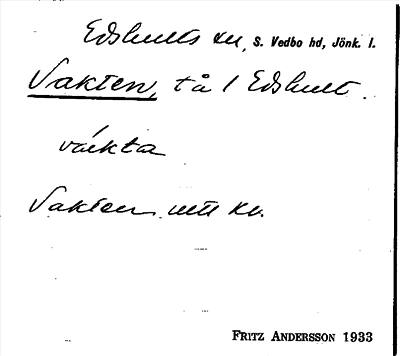 Edshults sn, S. Vedbo hd, Jönk. l.
Vakten, tå 1 Edshult.
väkta
Vakten mtl kv.
FRITZ ANDERSSON 1933